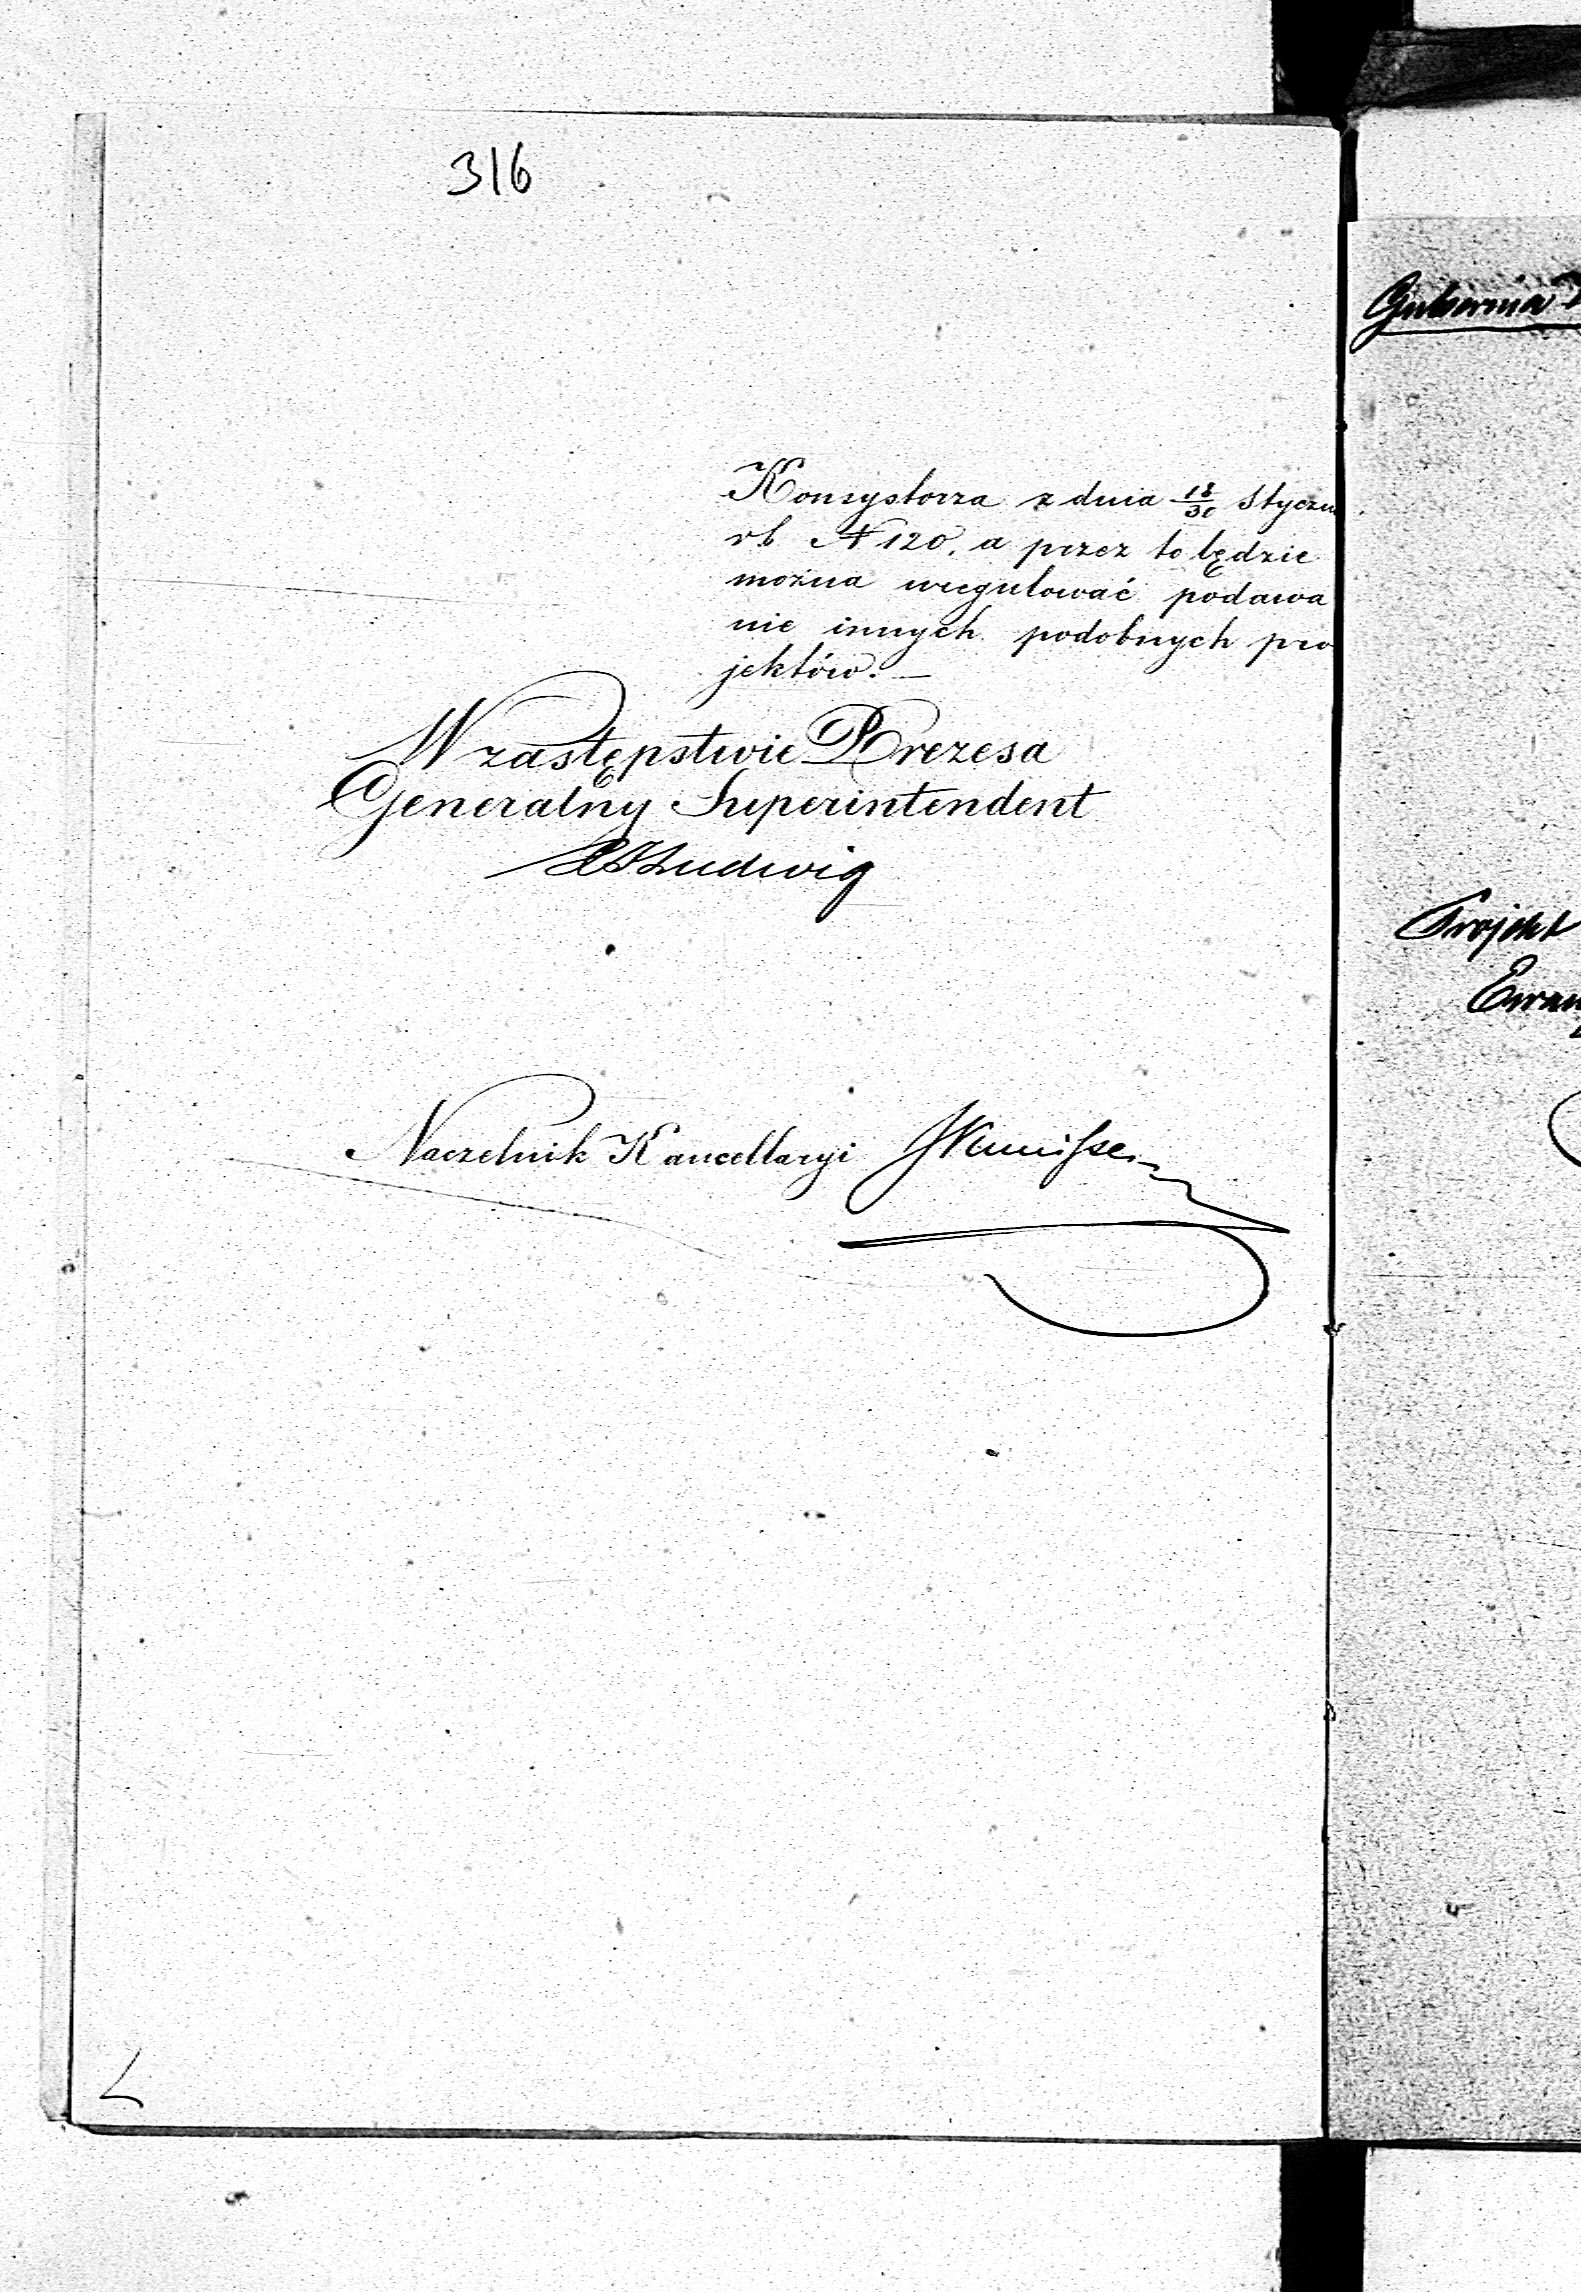 316
Konsystorza z dnia 18/30 Styczn
rb N 120, a przez to będzie
można uregulować podawa
nie innych podobnych pro
jektów. —
W zastępstwie Prezesa
Generalny Superintendent
Ludwig
Naczelnik Kancellaryi
Gubernia
Projekt
Ewan